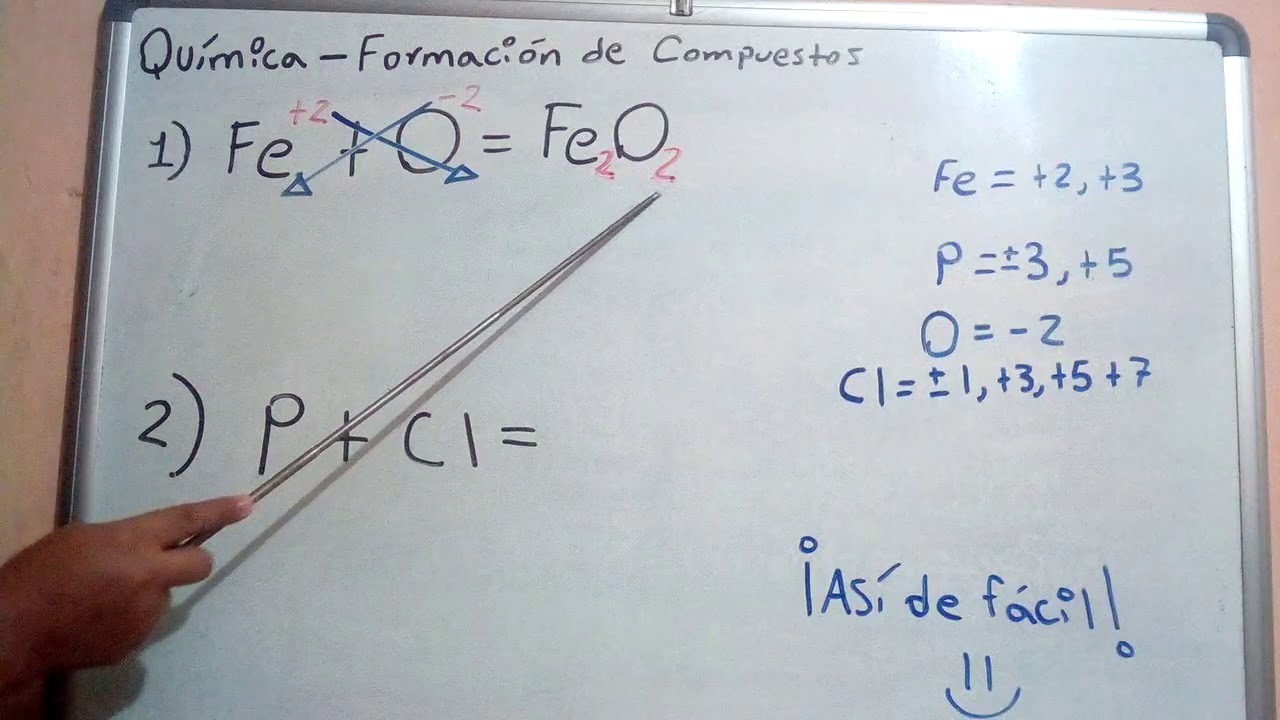 Química - Formación de Compuestos
1) Fe+2 + O-2 = Fe2O2
Fe = +2, +3
P = ±3, +5
O = -2
Cl = ±1, +3, +5 +7
2) P + Cl =
¡Así de fácil!